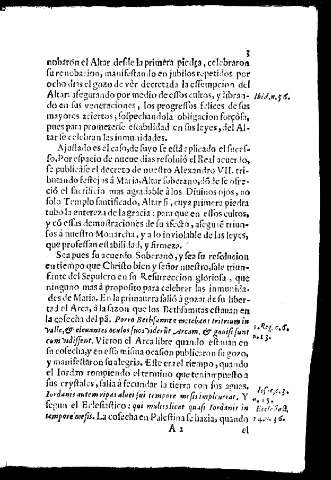 3
nobaron el Altar desde la primera piedra, celebraron
su renobacion, manifestando en jubilos repetidos por
ocho dias el gozo de vèr decretada la essempcion del
Altar: asegurando por medio de essos cultos, y libran-
do en sus veneraciones, los progressos felices de sus
mayores aciertos; sospechandola obligacion forçosa,
pues para prometerse estabilidad en sus leyes, del Al-
tar se celebran las inmunidades.
Ibid. n. 56.
Ajustado es el caso, de suyo se està aplicado el suces-
so. Por espacio de nueue dias resoluiò el Real acuerdo,
se publicasse el decreto de nuestro Alexandro VII. tri-
butando festejos à Maria, Altar soberano, dõ de se ofre-
ciò el sacrificio mas agradable à los Diuinos ojos, no
solo Templo santificado, Altar si, cuya primera piedra
tubo la entereza de la gracia: para que en essos cultos,
y cõ essas demonstraciones de su afecto, assegure triun-
sos à nuestro Monarcha, y à lo inviolable de las leyes,
que professan estabilidad, y firmeza.
Sea pues su acuerdo Soberano, y sea su resolucion
en tiempo que Christo bien y señor nuestro, sale triun-
fante del Sepulcro en su Resurreccion gloriosa, que
ninguno mas à proposito para celebrar las inmunida-
des de Maria. En la primavera saliò à gozar de su liber-
tad el Arca, à la sazon que los Bethsamitas estauan en
la cosecha del pã. Porro Bethsamitæ metebant triticum in
valle, & eleuantes oculos suos viderũt Arcam, & gauisi sunt
cum vidissent. Vieron el Arca libre quando estauan en
su cosecha, y en essa misma ocasion publicaron su gozo,
y manifestaron su alegria. Este era el tiempo, quando
el Jordan rompiendo el termino que tenian puesto a
sus crystales, salia à fecundar la tierra con sus aguas.
1. Reg. c. 6.
n. 13.
Iordanis autem ripas aluei sui tempore messis impleuerat. Y
segun el Eclesiastico: qui multiplicat quasi Iordanis in
tempore mesis. La cosecha en Palestina se hazia, quando
Iosue. c. 3.
n. 15.
Ecclesiast.
24. n. 36.
A 2 el